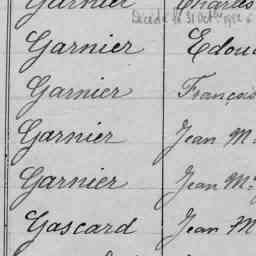 Garnier Charles
Décédé le 31 Oct
Garnier Edou
Garnier François
Garnier Jean M
Garnier Jean M
Gascard Jean M